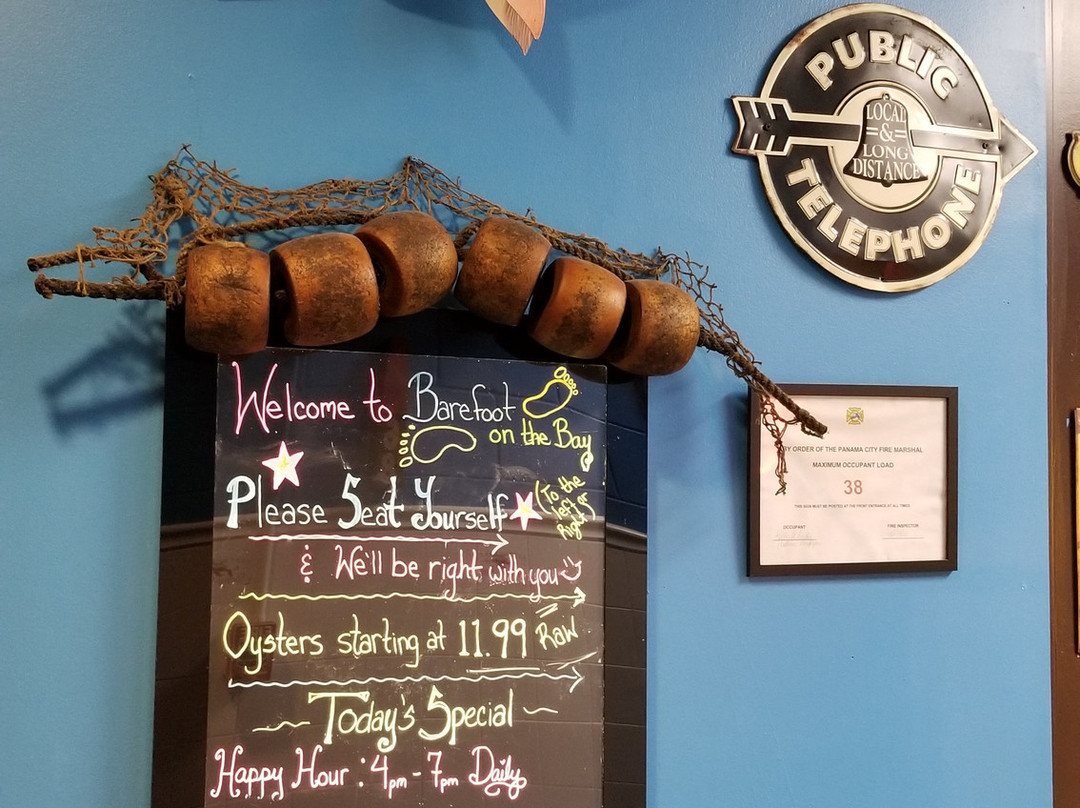 PUBLIC
LOCAL
&
LONG
DISTANCE
TELEPHONE
Welcome to Barefoot
on the Bay
Please Seat Yourself
(To the
left or
Right)
& We'll be right with you
Oysters starting at 11.99 Raw
Today's Special
Happy Hour : 4pm - 7pm Daily
BY ORDER OF THE PANAMA CITY FIRE MARSHAL
MAXIMUM OCCUPANT LOAD
38
THIS SIGN MUST BE POSTED AT THE FRONT ENTRANCE AT ALL TIMES
OCCUPANT
FIRE INSPECTOR